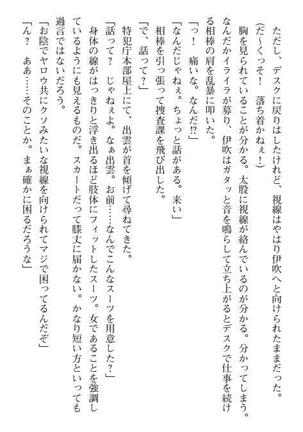 ただし、デスクに戻りはしたけれど、視線はやはり伊吹へと向けられたままだった。
(だ～くっそ！　落ち着かねぇ！)
胸を見られていることが分かる。太股に視線が絡んでいるのが分かる。分かってしまう。
なんだかイライラが募り、伊吹はガタッと音を鳴らして立ち上がるとデスクで仕事を続け
る相棒の肩を乱暴に叩いた。
「っ！　痛いな。なんだ!?」
「なんだじゃねぇ。ちょっと話がある。来い」
相棒を引っ張って捜査課を飛び出した。
「で、話って？」
特犯庁本部屋上にて、出雲が首を傾げて尋ねてきた。
「話って？　じゃねぇよ。なぁ出雲。お前……なんでこんなスーツを用意した？」
身体の線がはっきりと浮き出るほど肢体にフィットしたスーツ。女であることを強調し
ているようにも見えるものだ。スカートだって膝丈に届かない。かなり短い方といっても
過言ではないだろう。
「お陰でヤロウ共にクソみたいな視線を向けられてマジで困ってるんだぞ」
「ん？　ああ……そのことか。まぁ確かに困るだろうな」